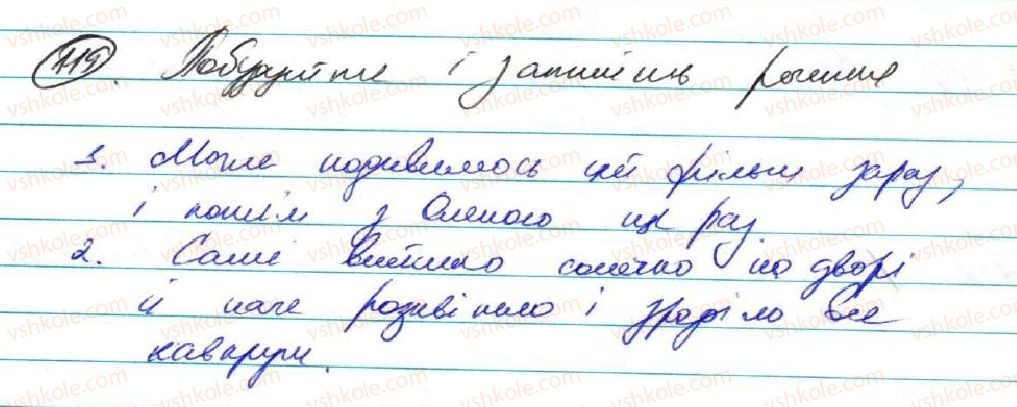 119. Побудуйте і запишіть речення
1. Може подивимось цей фільм зараз,
і потім з Оленою ще раз.
2. Саме вийшло сонечко на дворі
й наче розквітло і зраділо все
навкруги.